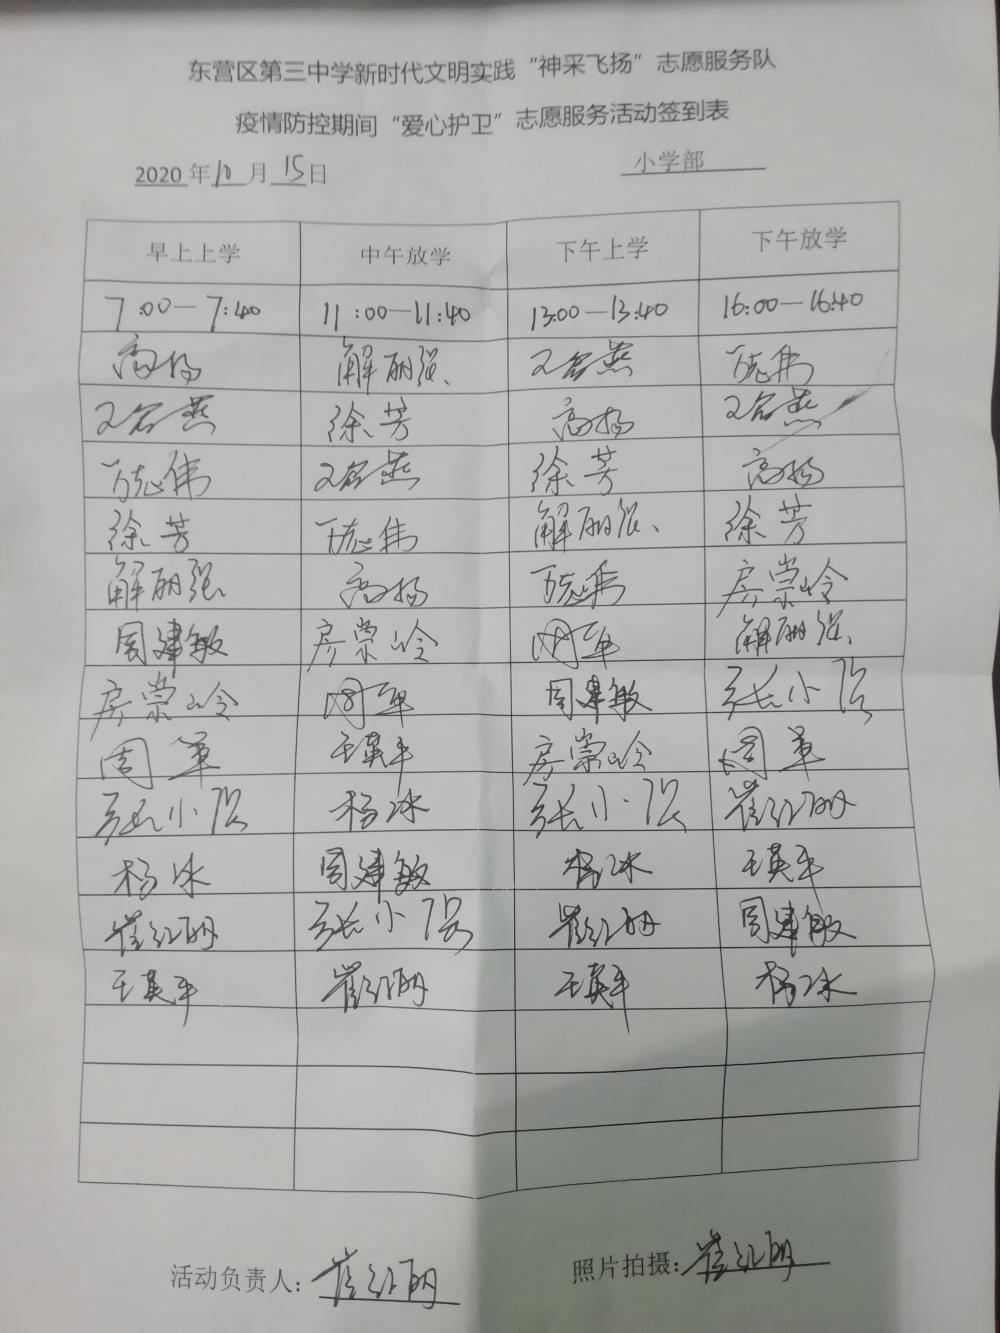 东营区第三中学新时代文明实践“神采飞扬”志愿服务队
疫情防控期间“爱心护卫”志愿服务活动签到表
2020年10月15日 小学部
早上上学 中午放学 下午上学 下午放学
7:00—7:40 11:00—11:40 13:00—13:40 16:00—16:40
高扬 解丽强、 燕 万志伟
燕 徐芳 高扬 燕
万志伟 燕 徐芳 高扬
徐芳 万志伟 解丽强、 徐芳
解丽强 高扬 万志伟 房崇岭
周建敏 房崇岭 周军 解丽强、
房崇岭 周军 周建敏 张小强
周军 王英平 房崇岭 周军
张小强 杨冰 张小强 崔红明
杨冰 周建敏 杨冰 王英平
崔红明 张小强 崔红明 周建敏
王英平 崔红明 王英平 杨冰
活动负责人：崔红明 照片拍摄：崔红明